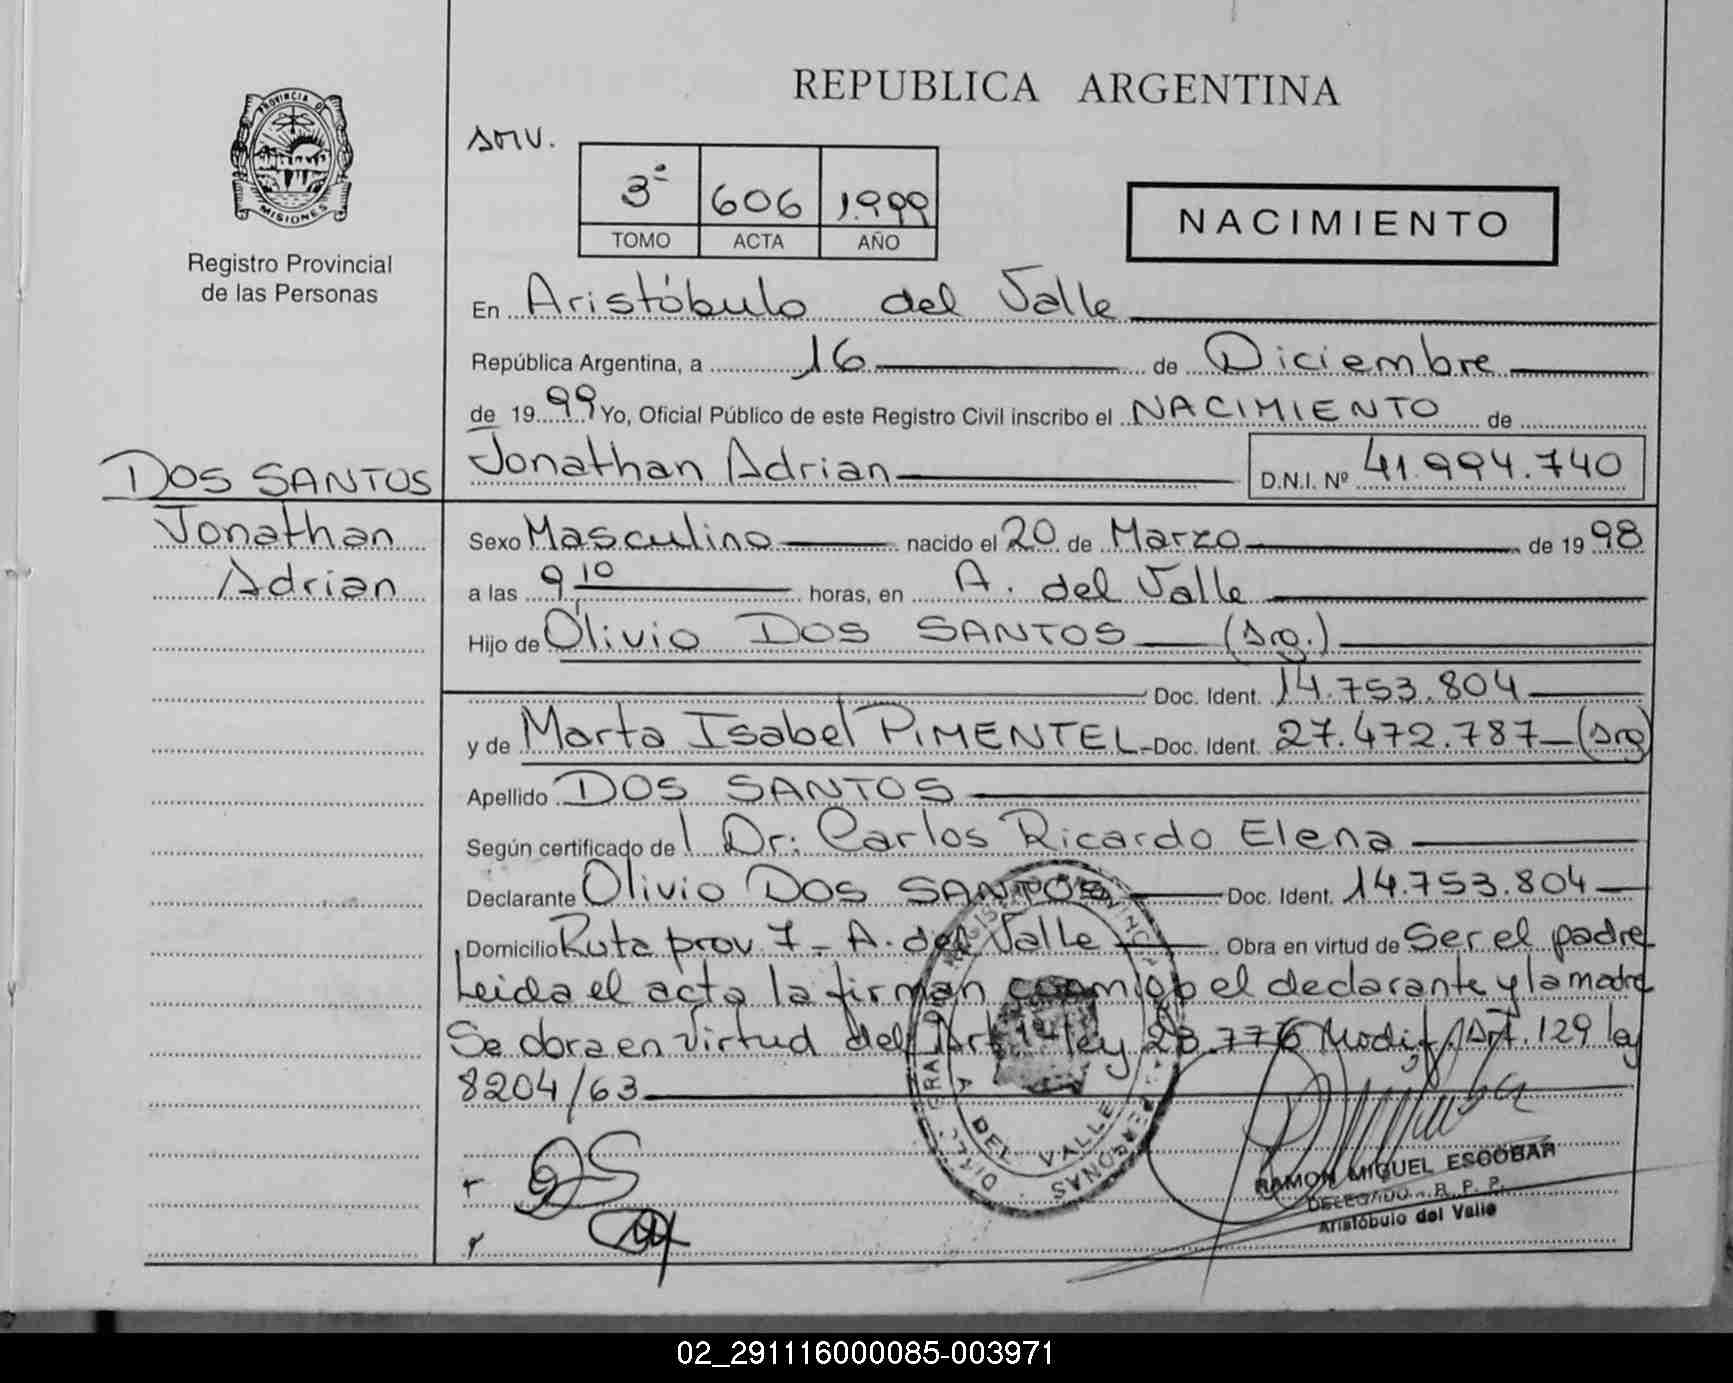 REPUBLICA ARGENTINA
PROVINCIA DE
MISIONES
Registro Provincial
de las Personas
3º 606 1.999
TOMO ACTA AÑO
NACIMIENTO
En Aristóbulo del Valle
República Argentina, a 16 de Diciembre
de 19 99 Yo, Oficial Público de este Registro Civil inscribo el NACIMIENTO de
DOS SANTOS
Jonathan
Adrian
Jonathan Adrian D.N.I. Nº 41.994.740
Sexo Masculino nacido el 20 de Marzo de 19 98
a las 9 10 horas, en A. del Valle
Hijo de Olivio DOS SANTOS (Arg.)
Doc. Ident. 14.753.804
y de Marta Isabel PIMENTEL Doc. Ident. 27.472.787 (Arg
Apellido DOS SANTOS
Según certificado de Dr. Carlos Ricardo Elena
Declarante Olivio DOS SANTOS Doc. Ident. 14.753.804
Domicilio Ruta prov. 7 - A. del Valle Obra en virtud de Ser el padre
Leida el acta la firman conmigo el declarante y la madre
Se obra en virtud del Art 1º ley 23.776 Modif. Art. 129 ley
8204/63
DEL VALLE
PERSONAS
RAMON MIGUEL ESCOBAR
DELEGADO - R. P. P.
Aristóbulo del Valle
02_291116000085-003971